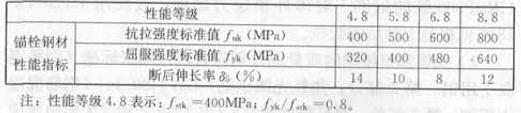 性能等级 4.8 5.8 6.8 8.8
锚栓钢材性能指标
抗拉强度标准值 fstk (MPa) 400 500 600 800
屈服强度标准值 fyk (MPa) 320 400 480 640
断后伸长率 δ5 (%) 14 10 8 12
注：性能等级 4.8 表示：fstk=400MPa；fyk/fstk=0.8。